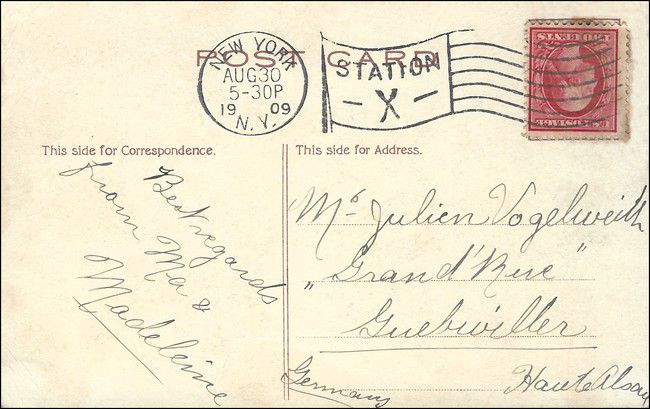 POST CARD
NEW YORK
AUG 30
5-30P
1909
N.Y.
STATION
- X -
This side for Correspondence.
This side for Address.
Best regards
from Ma &
Madeleine
Mr. Julien Vogelweith
„ Grand'Rue "
Guebwiller
Haute Alsace
Germany